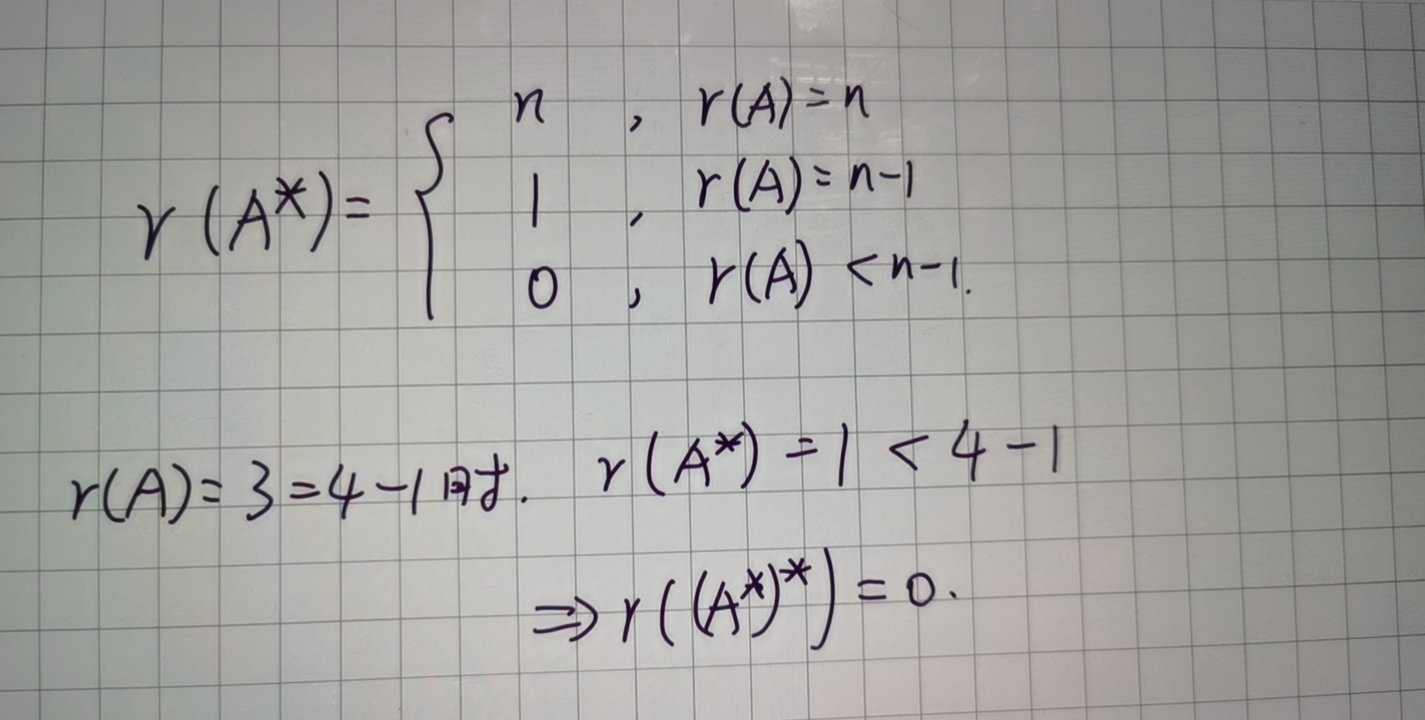 r(A*)= { n , r(A)=n
1 , r(A)=n-1
0 , r(A)<n-1.
r(A)=3=4-1时. r(A*)=1<4-1
⇒r((A*)*)=0.